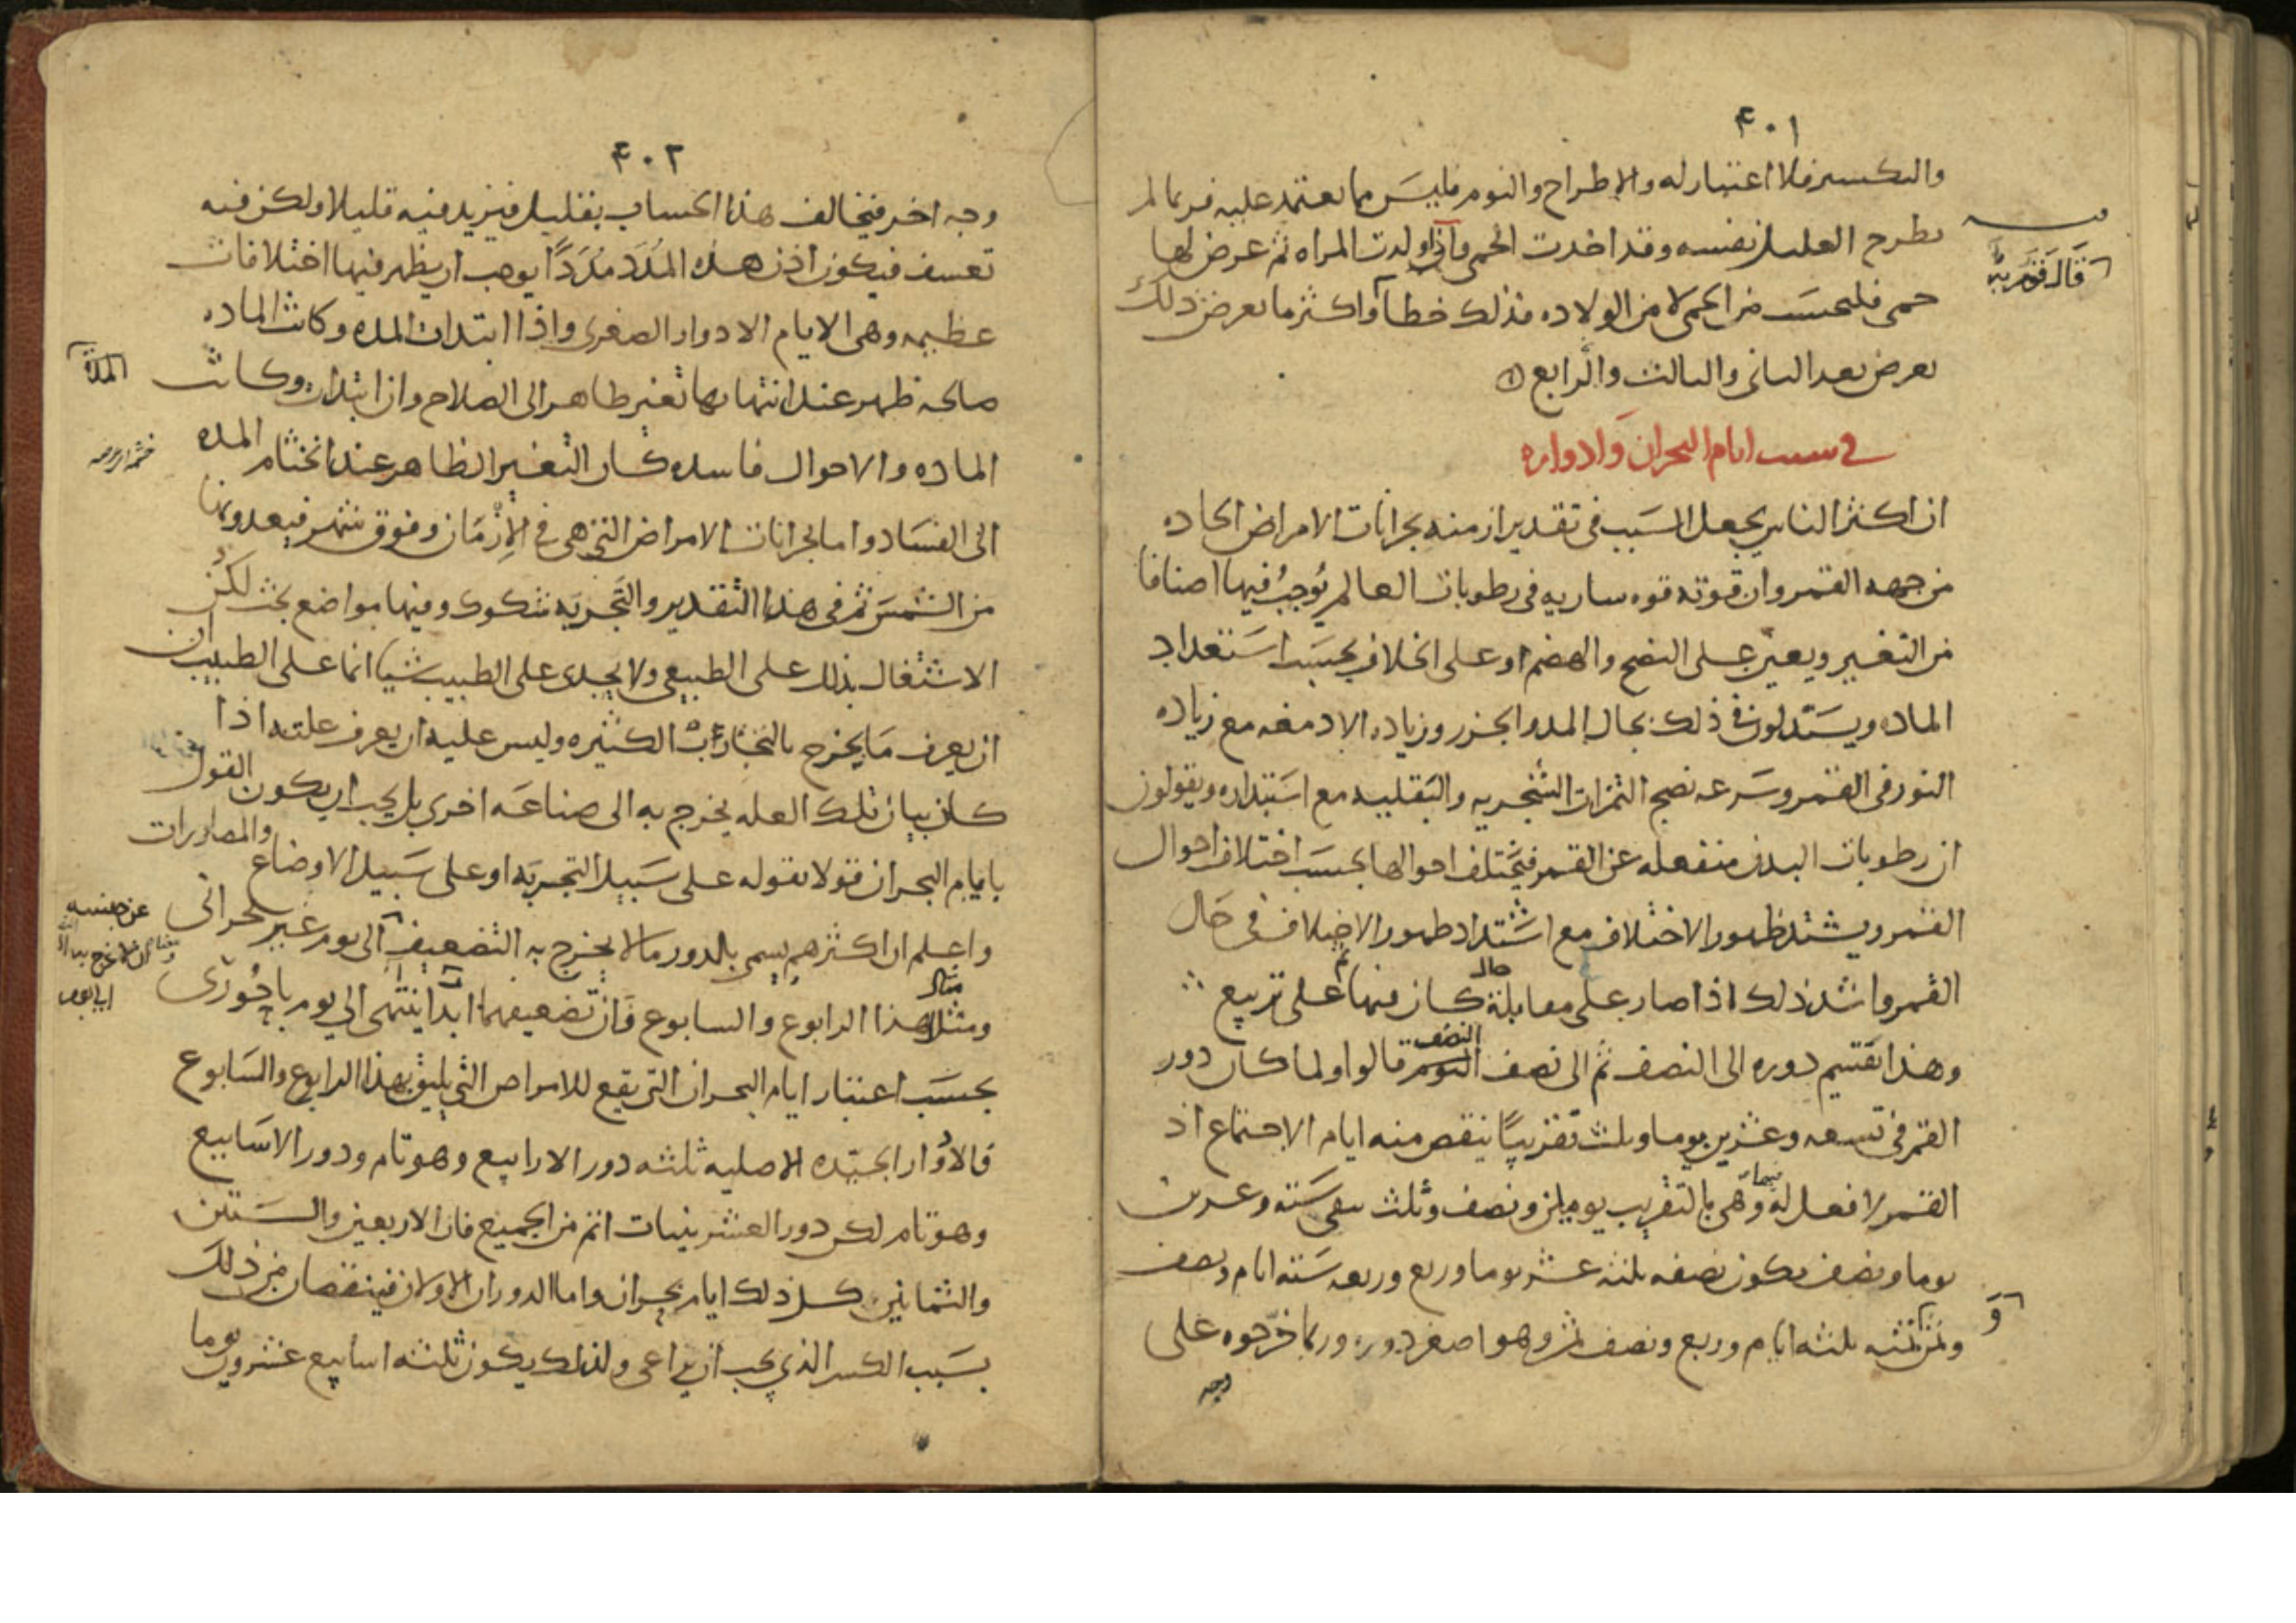 ٤٠١
والتكسير فلا اعتبار له والاطراح والنوم فليس مما يعتمد عليه فربما لم
يطرح العليل نفسه وقد اخذت الحمى واذا ولدت المراه ثم عرض لها
حمى فليحسب من الحمى لا من الولاده فذلك خطأ واكثر ما يعرض ذلك
يعرض بعد الثانى والثالث والرابع
فى سبب ايام البحران وادواره
ان اكثر الناس يجعل السبب فى تقدير ازمنه بحرانات الامراض الحاده
من جهه القمر وان قوته قوه ساريه فى رطوبات العالم يوجب فيها اصنافا
من التغيير ويعين على النضج والهضم او على الخلاف بحسب استعداد
الماده ويستدلون فى ذلك بحال المد والجزر وزياده الادمغه مع زياده
النور فى القمر وسرعه نضج الثمرات الشجريه والبقليه مع استبداره ويقولون
ان رطوبات البدن منفعله عن القمر فيختلف احوالها بحسب اختلاف احوال
القمر ويشتد ظهور الاختلاف مع اشتداد ظهور الاختلاف فى حال
القمر واشد ذلك اذا صار على مقابلة حال كان فيها ثم على تربيع
وهذا يقتسم دوره الى النصف ثم الى نصف النصف قالوا ولما كان دور
القمر فى تسعه وعشرين يوما وثلث تقريبا ينقص منه ايام الاجتماع اذ
القمر لا فعل له فيها وهى بالتقريب يومين ونصف وثلث يبقى سته وعشرين
يوما ونصف يكون نصفه ثلثه عشر يوما وربع وربعه سته ايام ونصف
وثمن ثمنه ثلثه ايام وربع ونصف ثمن وهو اصغر دوره وربما خرجوه على
وجه
٤٠٢
وجه اخر فيخالف هذا الحساب بقليل فيزيد فيه قليلا ولكن فيه
تعسف فيكون اذن هذه المدد مددا يوجب ان يظهر فيها اختلافات
عظيمه وهى الايام الادوار الصغرى واذا ابتدات المده وكانت الماده
صالحه ظهر عند انتهايها تغير ظاهر الى الصلاح وان ابتدات وكانت
المده
الماده والاحوال فاسده كان التغير الظاهر عند اختتام المده
الى الفساد واما بحرانات الامراض التى هى فى الازمان وفوق شهر فيعدونها
من الشمس ثم فى هذا التقدير والتجربه شكوك وفيها مواضع بحث لكن
الاشتغال بذلك على الطبيعى ولا يجدى على الطبيب شيا انما على الطبيب ان
ان يعرف ما يخرج بالتجارب الكثيره وليس عليه ان يعرف علته اذا
كان بيان تلك العله يخرج به الى صناعه اخرى بل يجب ان يكون القول
بايام البحران قولا يقوله على سبيل التجربه او على سبيل الاوضاع والمصادرات
واعلم ان اكثرهم يسمى بالدور ما لا يخرج به التضعيف الى يوم غير بحرانى
عن جنسه
ومثال هذا الرابوع والسابوع فان تضعيفهما ابدا ينتهى الى يوم باحورى
بحسب اعتبار ايام البحران التى يقع للامراض التى يليق بهذا الرابوع والسابوع
فالادوار الجيده الاصليه ثلثه دور الارابيع وهو تام ودور الاسابيع
وهو تام لكن دور العشرينيات اتم من الجميع فان الاربعين والستين
والثمانين كل ذلك ايام بحران واما الدوران الاولان فينقصان من ذلك
بسبب الكسر الذى يجب ان يراعى ولذلك يكون ثلثه اسابيع عشرون يوما